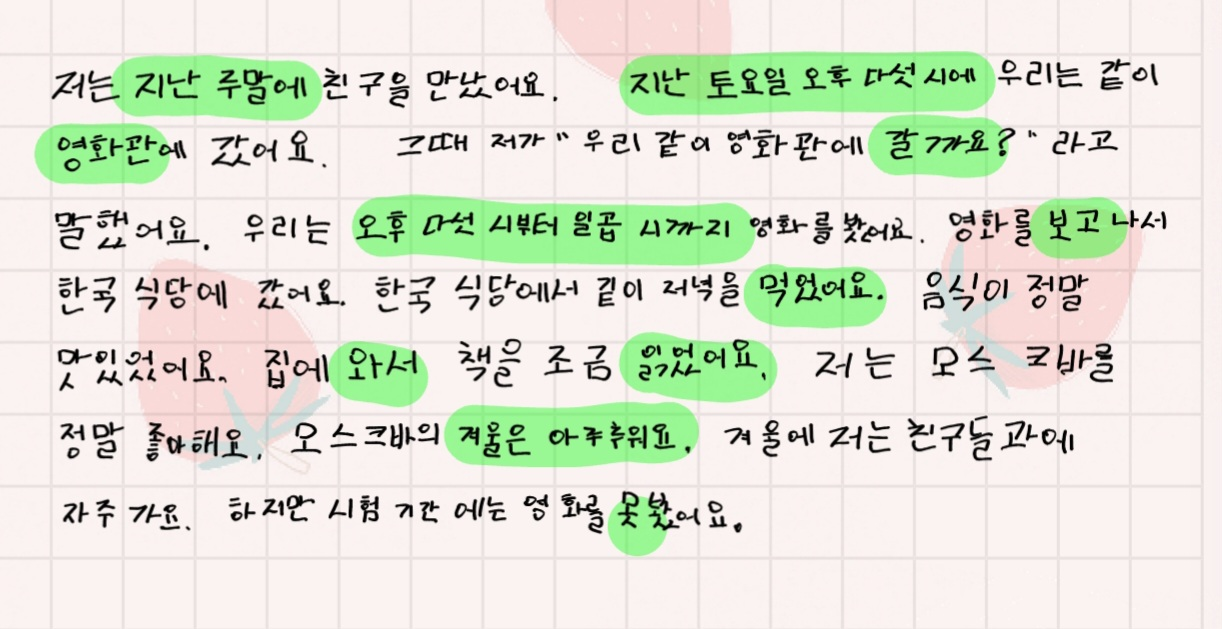 저는 지난 주말에 친구을 만났어요. 지난 토요일 오후 다섯 시에 우리는 같이
영화관에 갔어요. 그때 저가 "우리 같이 영화관에 갈까요?" 라고
말했어요. 우리는 오후 다섯 시부터 일곱 시까지 영화를 봤어요. 영화를 보고 나서
한국 식당에 갔어요. 한국 식당에서 같이 저녁을 먹었어요. 음식이 정말
맛있었어요. 집에 와서 책을 조금 읽었어요. 저는 모스크바를
정말 좋아해요. 모스크바의 겨울은 아주 추워요. 겨울에 저는 친구들과에
자주 가요. 하지만 시험 기간에는 영화를 못 봤어요.